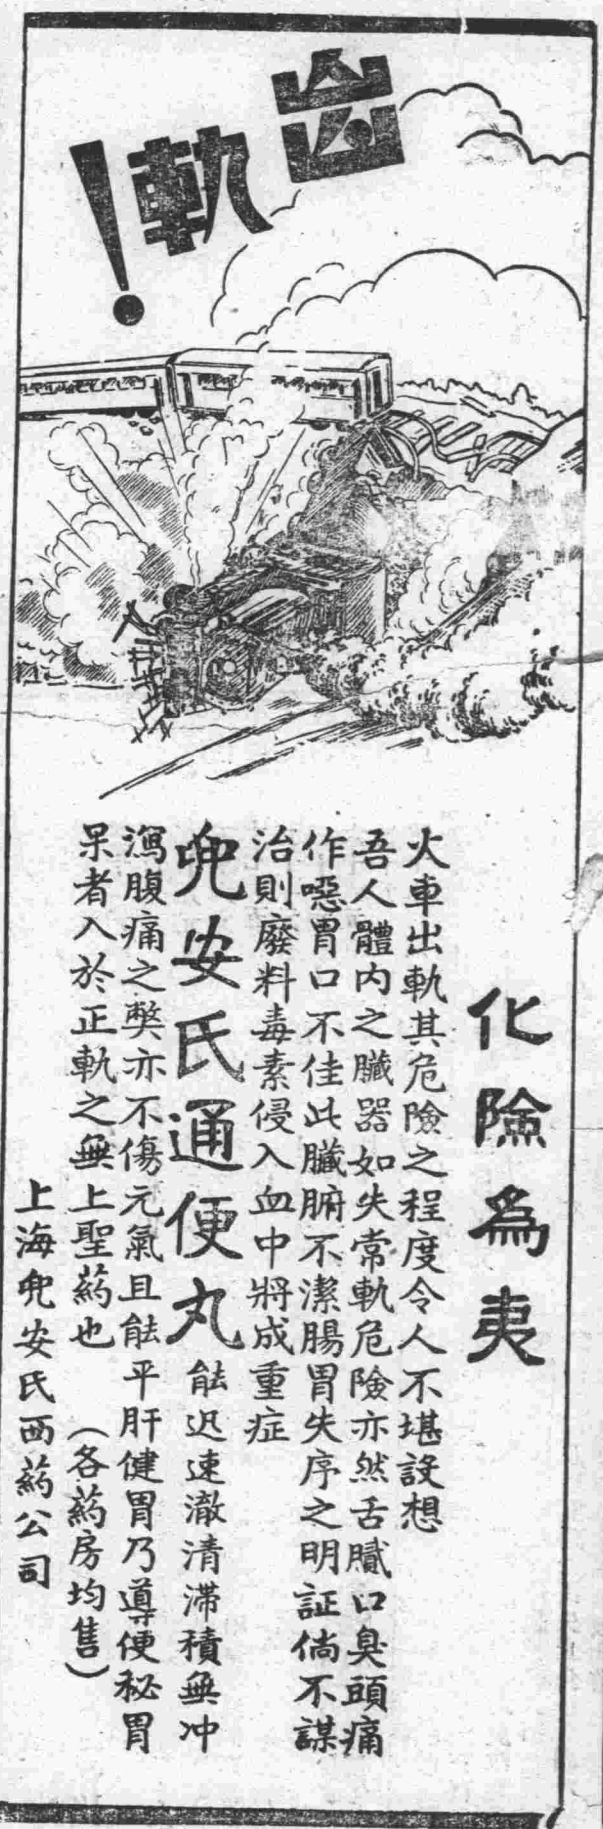 出軌！
化險為夷
火車出軌其危險之程度令人不堪設想
吾人體內之臟器如失常軌危險亦然舌膩口臭頭痛
作噁胃口不佳此臟腑不潔腸胃失序之明証倘不謀
治則廢料毒素侵入血中將成重症
兜安氏通便丸能迅速澈清滯積無冲
瀉腹痛之弊亦不傷元氣且能平肝健胃乃導便秘胃
呆者入於正軌之無上聖葯也（各葯房均售）
上海兜安氏西葯公司